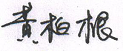 黄柏根